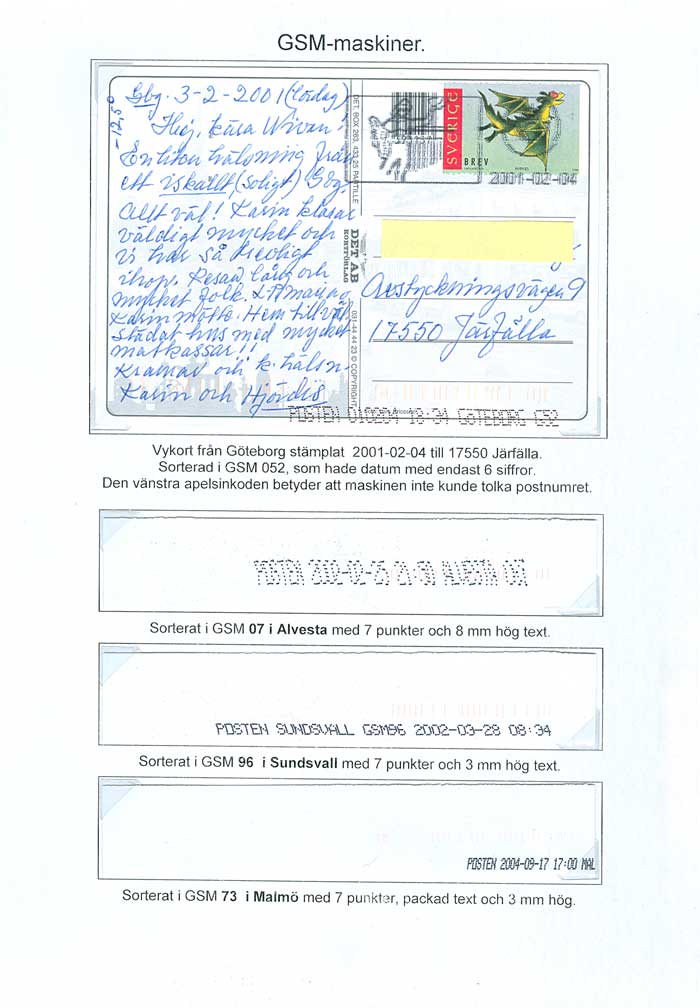 GSM-maskiner.
Gbg. 3-2-2001 (lördag)
-12,5°
Hej, kära Wivan!
En liten hälsning från
ett iskallt, (soligt) Gbg.
Allt väl! Karin klarar
väldigt mycket och
vi har så trevligt
ihop. Resan lång och
mycket folk.
Karin mötte. Hem till väl-
städat hus med mycket
matkassar!!
Kramar och k. hälsn.
Karin och Hjördis
DET AB
KORTFÖRLAG
DET, BOX 263, 433 25 PARTILLE
031-44 44 23 © COPYRIGHT
SVERIGE
BREV
2001-02-04
Avstyckningsvägen 9
17550 Järfälla
POSTEN 010204 18-34 GÖTEBORG 052
Vykort från Göteborg stämplat 2001-02-04 till 17550 Järfälla.
Sorterad i GSM 052, som hade datum med endast 6 siffror.
Den vänstra apelsinkoden betyder att maskinen inte kunde tolka postnumret.
POSTEN 2002-02-25 21-50 ALVESTA 007
Sorterat i GSM 07 i Alvesta med 7 punkter och 8 mm hög text.
POSTEN SUNDSVALL GSM96 2002-03-28 08:34
Sorterat i GSM 96 i Sundsvall med 7 punkter och 3 mm hög text.
POSTEN 2004-09-17 17:00 MAL
Sorterat i GSM 73 i Malmö med 7 punkter, packad text och 3 mm hög.